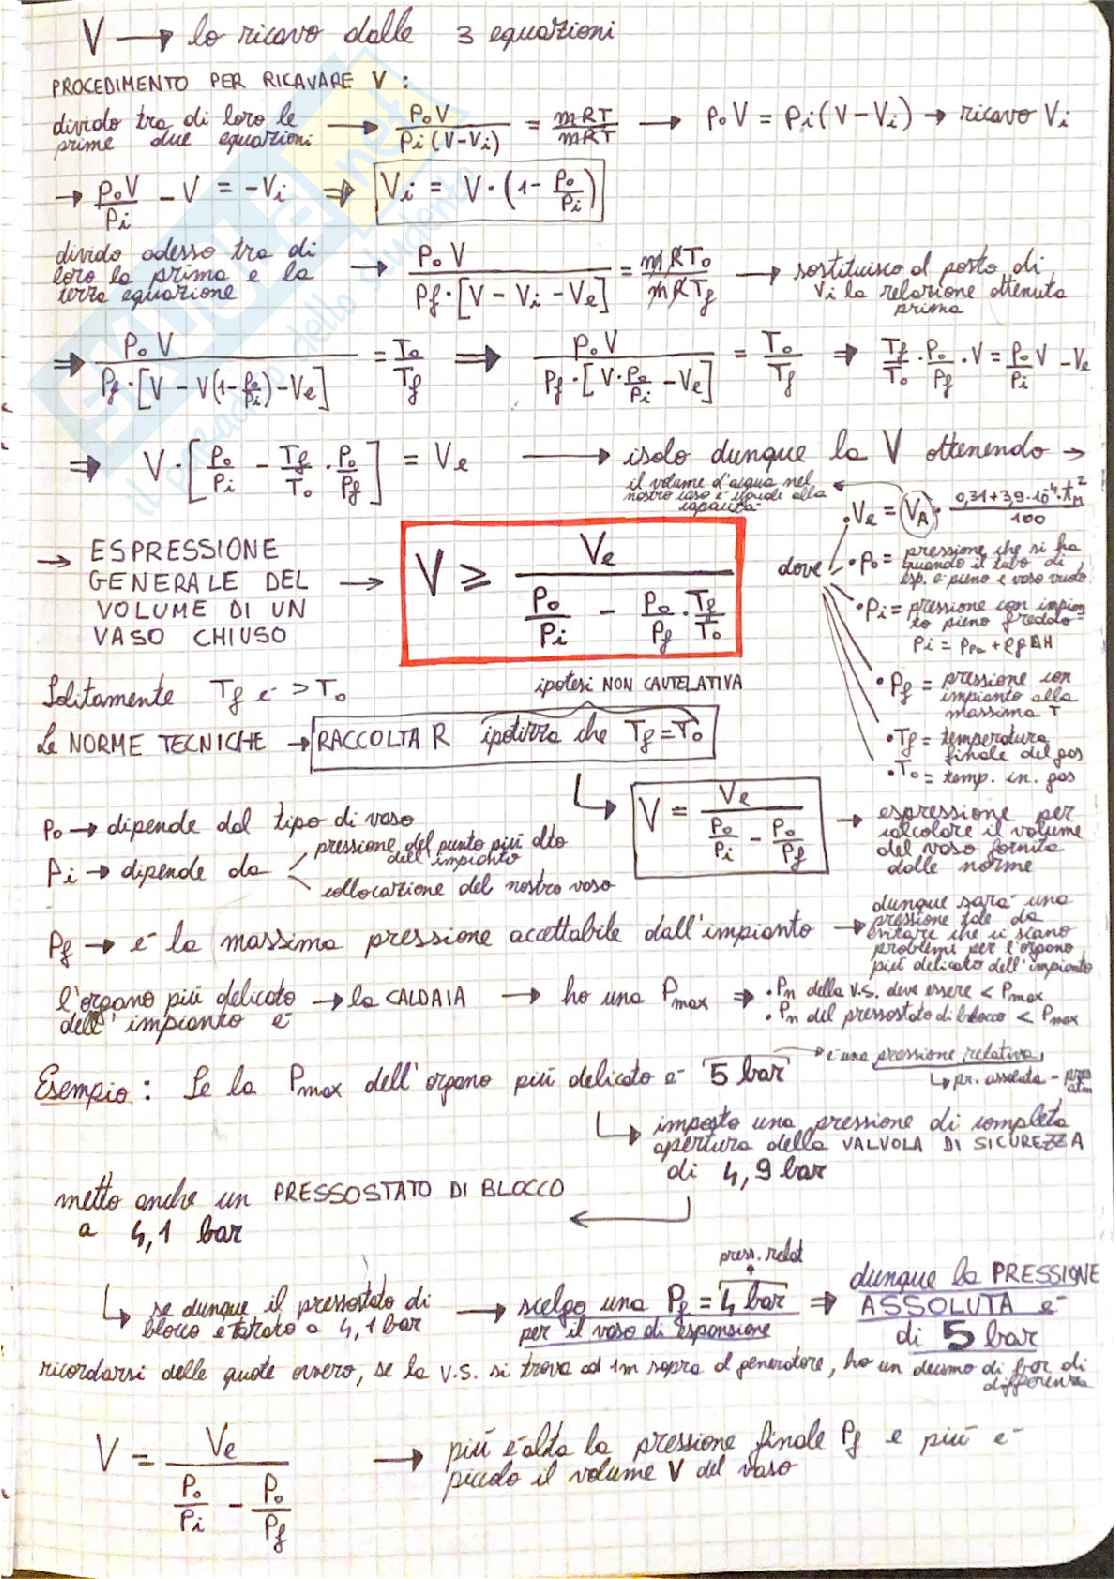 V → lo ricavo dalle 3 equazioni
PROCEDIMENTO PER RICAVARE V :
divido tra di loro le prime due equazioni → P₀V / Pi(V-Vi) = mRT / mRT → P₀V = Pi(V-Vi) → ricavo Vi
→ P₀V/Pi - V = -Vi ⇒ Vi = V·(1 - P₀/Pi)
divido adesso tra di loro la prima e la terza equazione → P₀V / Pf·[V - Vi - Ve] = mRT₀ / mRTf → sostituisco al posto di Vi la relazione ottenuta prima
⇒ P₀V / Pf·[V - V(1-P₀/Pi) - Ve] = T₀/Tf ⇒ P₀V / Pf·[V·P₀/Pi - Ve] = T₀/Tf ⇒ Tf/T₀ · P₀/Pf · V = P₀/Pi V - Ve
⇒ V·[P₀/Pi - Tf/T₀ · P₀/Pf] = Ve → isolo dunque la V ottenendo →
il volume d'acqua nel
nostro caso è uguale alla
capacità
• Ve = VA · 0,31 + 3,9·10⁻⁴·tM² / 100
→ ESPRESSIONE
GENERALE DEL
VOLUME DI UN
VASO CHIUSO → V ≥ Ve / P₀/Pi - P₀/Pf · Tf/T₀
dove
• P₀ = pressione che si ha
quando il tubo di
esp. è pieno e vaso vuoto
• Pi = pressione con impian
to pieno freddo =
Pi = PPa + ρgΔH
• Pf = pressione con
impianto alla
massima T
• Tf = temperatura
finale del gas
• T₀ = temp. in. gas
Solitamente Tf è > T₀
ipotesi NON CAUTELATIVA
Le NORME TECNICHE → RACCOLTA R ipotizza che Tf = T₀
V = Ve / P₀/Pi - P₀/Pf → espressione per
calcolare il volume
del vaso fornita
dalle norme
P₀ → dipende dal tipo di vaso
Pi → dipende da
pressione del punto più alto
dell'impianto
collocazione del nostro vaso
Pf → è la massima pressione accettabile dall'impianto → dunque sarà una
pressione tale da
evitare che ci siano
problemi per l'organo
più delicato dell'impianto
l'organo più delicato
dell'impianto è → la CALDAIA → ho una Pmax ⇒ • Pn della V.S. deve essere < Pmax
• Pn del pressostato di blocco < Pmax
Esempio : Se la Pmax dell'organo più delicato è 5 bar → è una pressione relativa,
↳ pr. assoluta - pr. atm
↳ imposto una pressione di completa
apertura della VALVOLA DI SICUREZZA
di 4,9 bar
metto anche un PRESSOSTATO DI BLOCCO
a 4,1 bar
press. relat
↳ se dunque il pressostato di
blocco è tarato a 4,1 bar → scelgo una Pf = 4 bar
per il vaso di espansione ⇒ dunque la PRESSIONE
ASSOLUTA è
di 5 bar
ricordarsi delle quote ovvero, se la V.S. si trova ad 1m sopra al generatore, ho un decimo di bar di
differenza
V = Ve / P₀/Pi - P₀/Pf → più è alta la pressione finale Pf e più è
piccolo il volume V del vaso